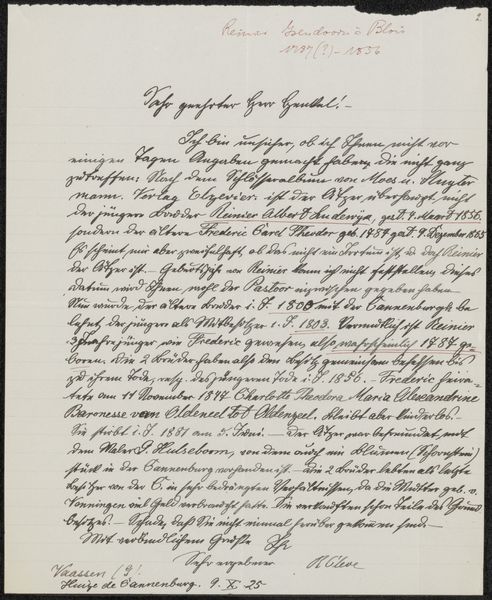 2
Reinier Isendoorn à Blois
1787(?) - 1856
Sehr geehrter Herr Henkel! -
Ich bin unsicher, ob ich Ihnen nicht vor
einigen Tagen Angaben gemacht habe, die nicht ganz
zutreffen: Nach dem Schlösseralbum von Moes u. Sluyter-
mann. Verlag Elzevier. ist der Ätzer überhaupt nicht
der jüngere Bruder Reinier Albert Ludewijk, gest. 4. Maart 1856.
sondern der ältere Frederic Carel Theodor geb. 1784 gest. 9. Dezember 1865
Es scheint mir aber zweifelhaft, ob das nicht ein Irrtum ist, u. dass Reinier
der Ätzer ist. - Geburtsjahr von Reinier kann ich nicht feststellen, dieses
datum wird Ihnen wohl der Pastoor inzwischen gegeben haben.
Nun wurde der ältere Bruder i. J. 1800 mit der Cannenburgh be-
lehnt, der jüngere als Mitbesitzer i. J. 1803. Vermutlich ist Reinier
3 Jahre jünger wie Frederic gewesen, also wahrscheinlich 1787 ge-
boren. Die 2 Brüder haben also den Besitz gemeinsam besessen bis
zu ihrem Tode, resp. des jüngeren Tode i. J. 1856. - Frederic heira-
tete am 11 November 1844 Charlotte Theodora Maria Alexandrine
Baronesse van Oldeneel tot Oldenzeel. bleibt aber kinderlos. -
Sie stirbt i. J. 1881 am 3. Juni. - Der Ätzer war befreundet mit
dem Maler P. Hulseborn, von dem auch ein Blumen (Schornstein)
stück in der Cannenburg vorhanden ist. - Die 2 Brüder leben als letzte
Besitzer von der C. in sehr bedrängten Verhältnissen, da die Mutter geb. v.
Renningen viel Geld verbraucht hatte. Sie verkauften schon Teile des Grund
besitzes. - Schade, dass Sie nicht einmal herüber gekommen sind. -
Mit verbindlichem Grüsse Ihr
Sehr ergebener
H Cleve
Vaassen (G)
Huize de Cannenburg. 9. X. 25